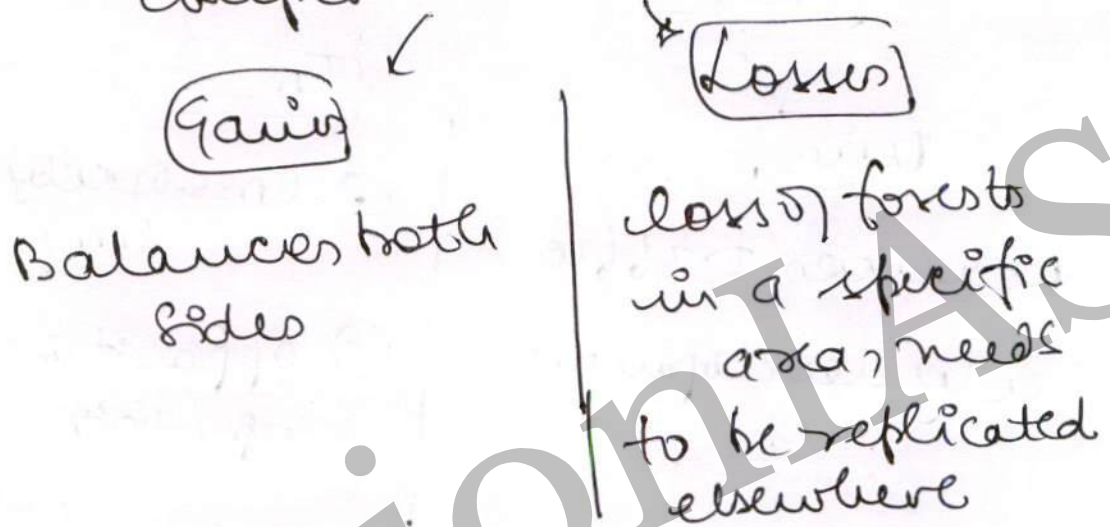 Gains
Balances both
sides
Losses
loss of forests
in a specific
area, needs
to be replicated
elsewhere
ionIAS